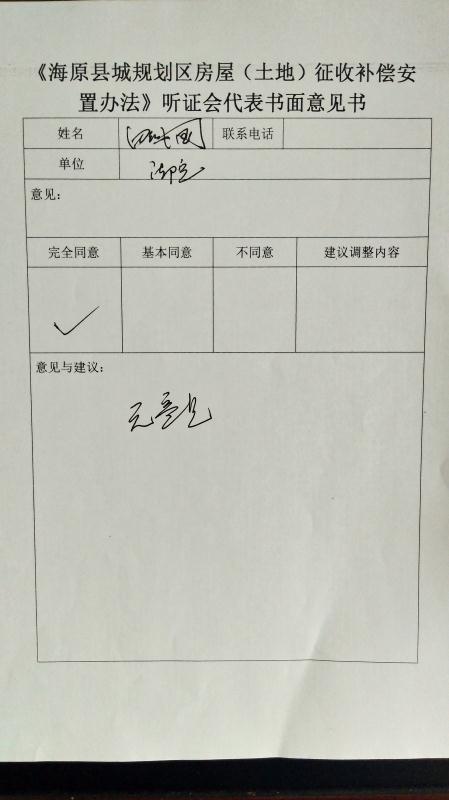 《海原县城规划区房屋（土地）征收补偿安
置办法》听证会代表书面意见书
姓名 联系电话
单位
意见：
完全同意 基本同意 不同意 建议调整内容
✓
意见与建议：
无意见